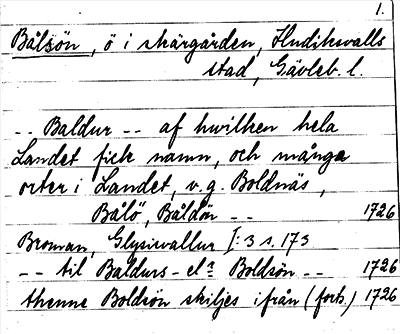 1.
Bålsön, ö i skärgården, Hudiksvalls
stad, Gävleb. l.
-- Baldur -- af hwilken hela
Landet fick namn, och många
orter i Landet, v.g. Boldnäs,
Bålö, Båldön -- 1726
Broman, Glysisvallur I:3 s. 173
-- til Baldurs- elr Boldsön -- 1726
thenne Boldsön skiljes ifrån (forts.) 1726